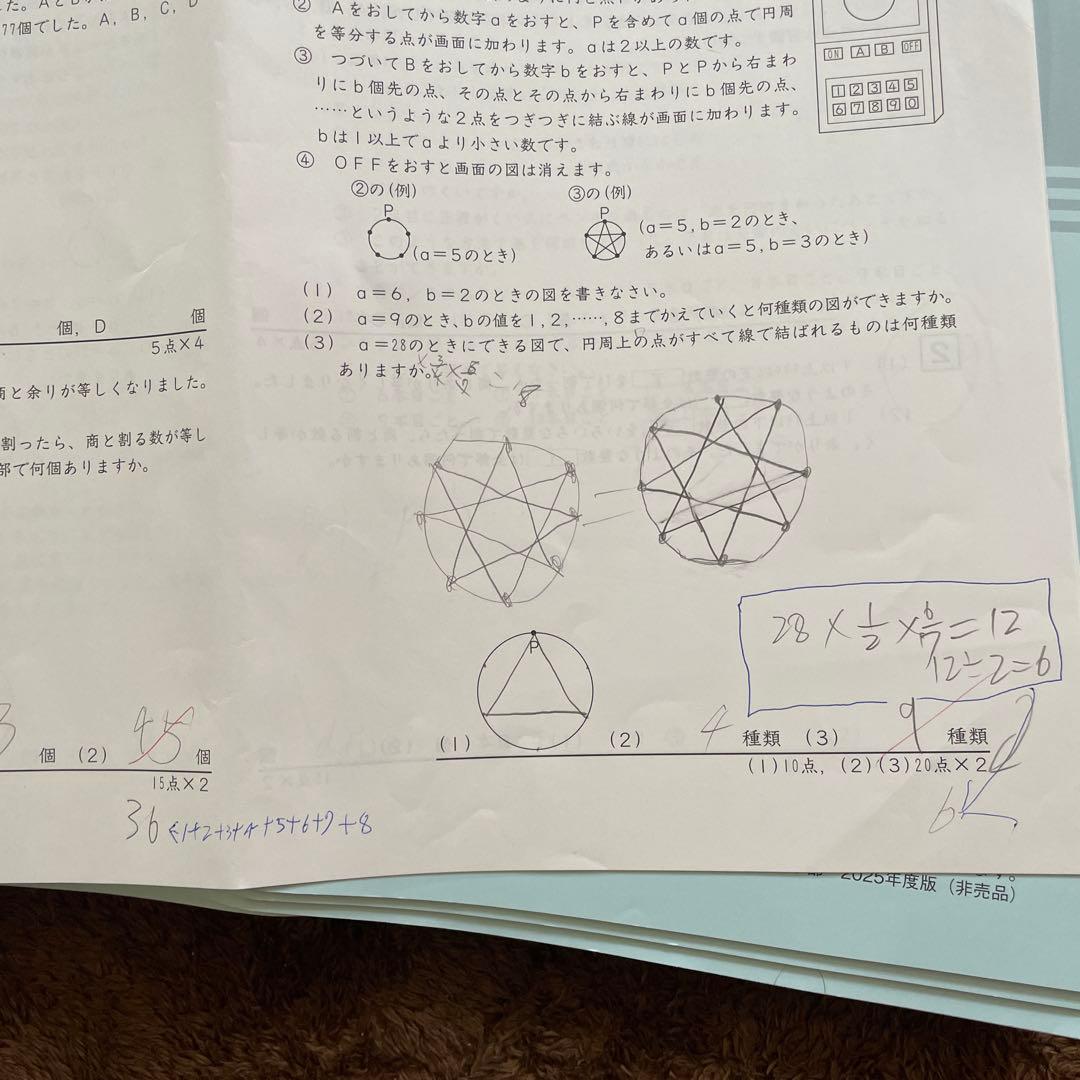 77個でした。A，B，C，D
② Aをおしてから数字aをおすと、Pを含めてa個の点で円周
を等分する点が画面に加わります。aは2以上の数です。
③ つづいてBをおしてから数字bをおすと、PとPから右まわ
りにb個先の点、その点とその点から右まわりにb個先の点、
……というような2点をつぎつぎに結ぶ線が画面に加わります。
bは1以上でaより小さい数です。
④ OFFをおすと画面の図は消えます。
ON A B OFF
1 2 3 4 5
6 7 8 9 0
②の(例) ③の(例)
P P
(a＝5のとき)
(a＝5，b＝2のとき、
あるいはa＝5，b＝3のとき)
(1) a＝6，b＝2のときの図を書きなさい。
(2) a＝9のとき、bの値を1，2，……，8までかえていくと何種類の図ができますか。
(3) a＝28のときにできる図で、円周上の点がすべて線で結ばれるものは何種類
ありますか。
個，D 個
5点×4
商と余りが等しくなりました。
割ったら、商と割る数が等し
部で何個ありますか。
28×1/2×6/7＝12
12÷2＝6
P
3 個 (2) 45 個
15点×2
36 ←1+2+3+4+5+6+7+8
(1) (2) 4 種類 (3) 9 種類
(1)10点，(2)(3)20点×2
6
2025年度版（非売品）